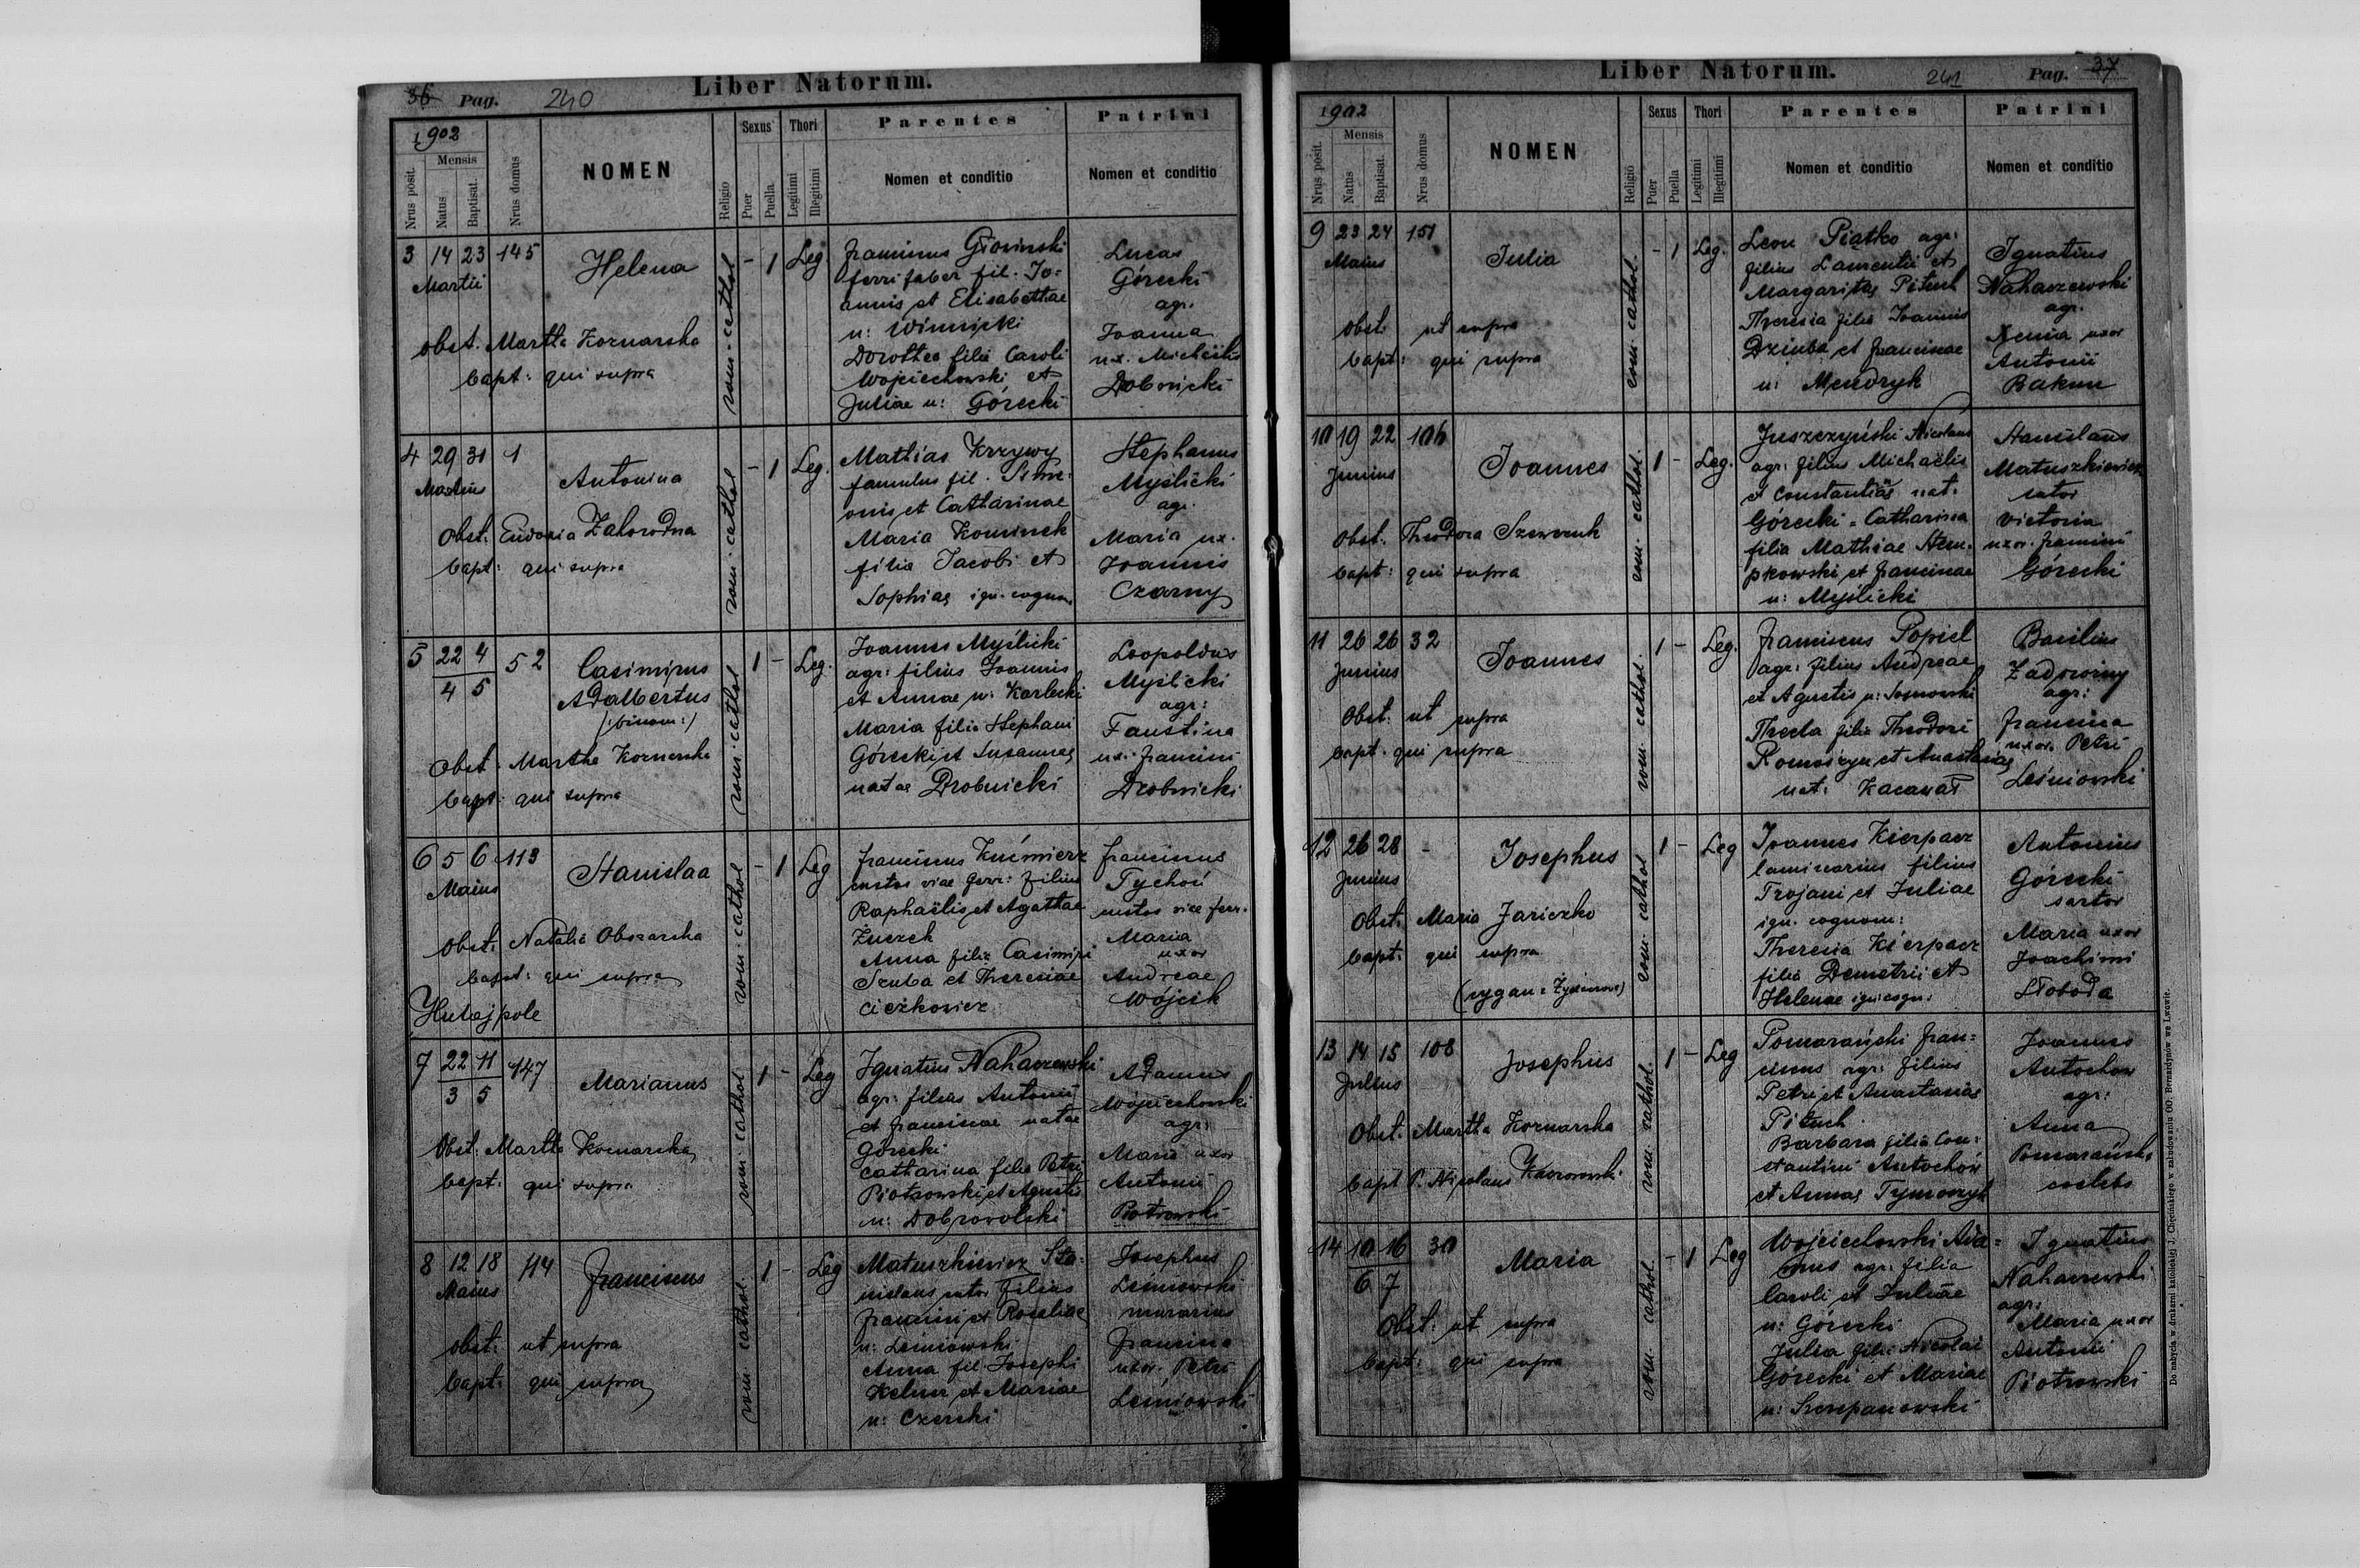 36 Pag. 240 Liber Natorum.
1902
Mensis
Nrus posit.
Natus
Baptisat.
Nrus domus
NOMEN
Religio
Sexus
Puer
Puella
Thori
Legitimi
Illegitimi
Parentes
Nomen et conditio
Patrini
Nomen et conditio
3 14 23 145
Martii
Helena
obst. Martha Kornarska
bapt: qui supra
rom. cathol
- 1 Leg.
ferri faber fil. Jo=
annis et Elisabethae
n: Winnicki
Dorothea filia Caroli
Wojciechowski et
Juliae n: Górecki
Lucas
Górecki
agr.
Joanna
ux. Michaëlis
Dobrnicki
4 29 31 1
Martius
Antonina
Obst. Eudoxia Zahorodna
bapt: qui supra
rom. cathol
- 1 Leg.
Mathias Krzywy
famulus fil. Sime-
onis et Catharinae
Maria Kominek
filia Jacobi et
Sophiae ign. cognom.
Stephanus
Myślicki
agr.
Maria ux.
Joannis
Czarny
5 22 4 52
4 5
Casimirus
Adalbertus
(:binom:)
Obst. Martha Kornarska
bapt: qui supra
rom. cathol
1 - Leg.
Joannes Myślicki
agr: filius Joannis
et Annae n: Karlecki
Maria filia Stephani
Górecki et Susannae
natae Drobnicki
Leopoldus
Myślicki
agr:
Faustina
ux. Francisci
Drobnicki
6 5 6 113
Maius
Stanislaa
Obst. Natalia Obszarska
bapt: qui supra
Hutajpole
rom. cathol
- 1 Leg
Franciscus Kuśmierz
custos viae ferr: filius
Raphaëlis et Agathae
Żuczek
Anna filia Casimiri
Szuba et Theresiae
Franciscus
Tychoń
custos viae ferr.
Maria
uxor
Andreae
Wójcik
7 22 11 147
3 5
Marianus
Obst. Martha Kornarska
bapt. qui supra
rom. cathol
1 - Leg
Ignatius Nahaczewski
agr: filius Antonii
et Franciscae natae
Górecki
Catharina filia Petri
Piotrowski et Agnetis
n: Dobrowolski
Adamus
Wojciechowski
agr:
Maria uxor
Antonii
Piotrowski
8 12 18 114
Maius
Franciscus
obst: ut supra
bapt: qui supra
rom. cathol.
1 - Leg
Matuszkiewicz Sta-
nislaus sutor filius
Francisci et Rosaliae
n: Leśniowski
Anna fil. Josephi
et Mariae
n: Czerski
Josephus
Leśniowski
murarius
Francisca
uxor. Petri
Leśniowski
Liber Natorum. 241 Pag. 37
1902
Mensis
Nrus posit.
Natus
Baptisat.
Nrus domus
NOMEN
Religio
Sexus
Puer
Puella
Thori
Legitimi
Illegitimi
Parentes
Nomen et conditio
Patrini
Nomen et conditio
9 23 24 151
Maius
Julia
obst. ut supra
bapt: qui supra
rom. cathol.
- 1 Leg.
Leon Piątko agr:
filius Laurentii et
Margaritae Pituch
Theresia filia Joannis
Dziuba et Franciscae
n: Mendryk
Ignatius
Nahaczewski
agr.
Xenia uxor
Antonii
Bakun
10 19 22 106
Junius
Joannes
Obst. Theodora Szewczuk
bapt: qui supra
rom. cathol.
1 - Leg.
Juszczyński Nicolaus
agr: filius Michaëlis
et Constantiae nat:
Górecki = Catharina
filia Mathiae Stem-
pkowski et Franciscae
n: Myślicki
Stanislaus
Matuszkiewicz
sutor
Victoria
uxor. Francisci
Górecki
11 26 26 32
Junius
Joannes
Obst. ut supra
bapt. qui supra
rom. cathol.
1 - Leg.
Franciscus Popiel
agr: filius Andreae
et Agnetis n: Sosnowski
Thecla filia Theodori
et Anastasiae
nat:
Basilius
Zadorożny
agr:
Francisca
uxor. Petri
Leśniowski
12 26 28 -
Junius
Josephus
Obst. Maria Jariczko
bapt. qui supra
rom. cathol
1 - Leg
Joannes Kierpacz
laminarius filius
Trojani et Juliae
ign. cognom:
Theresia Kierpacz
filia Demetrii et
Helenae ign: cogn:
Antonius
Górecki
sartor
Maria uxor
Joachimi
Słoboda
13 14 15 108
Julius
Josephus
Obst. Martha Kornarska
bapt P. Nicolaus Kaczorowski
rom. cathol.
1 - Leg
Pomarański Fran=
ciscus agr: filius
Petri et Anastasiae
Pituch
Barbara filia Con=
stantini Antochów
et Annae Tymczyk
Joannes
Antochow
agr:
Anna
Pomarańska
coelebs
14 10 16 30
6 7
Maria
Obst: ut supra
bapt: qui supra
rom. cathol.
- 1 Leg
Wojciechowski Ada=
mus agr: filia
Caroli et Juliae
n: Górecki
Julia filia Nicolai
Górecki et Mariae
n: Szczepanowski
Ignatius
Nahaczewski
agr:
Maria uxor
Antonii
Piotrowski
Do nabycia w drukarni katolickiej J. Chęcińskiego w zabudowaniu OO. Bernardynów we Lwowie.